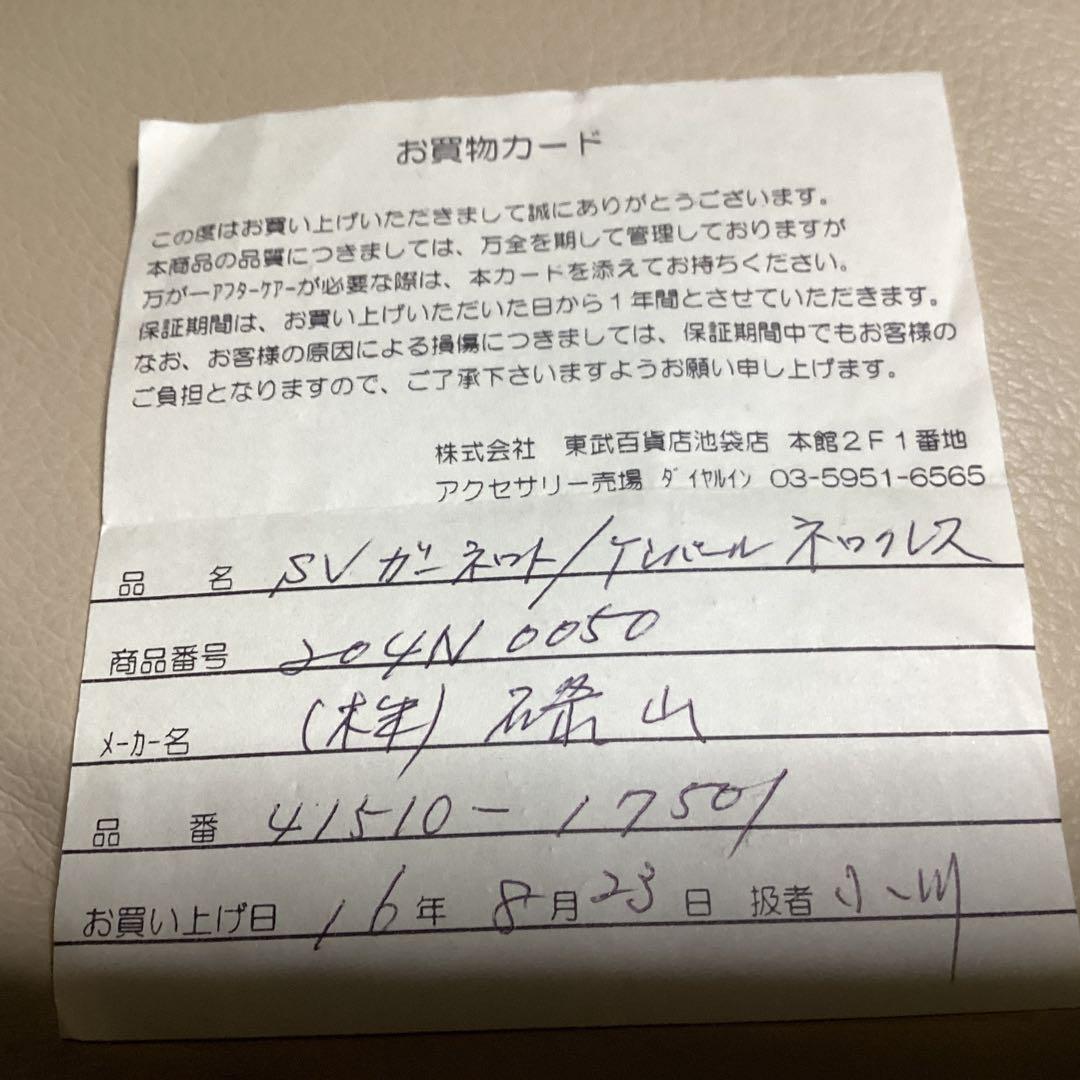 お買物カード
この度はお買い上げいただきまして誠にありがとうございます。
本商品の品質につきましては、万全を期して管理しておりますが
万が一ｱﾌﾀｰｹｱｰが必要な際は、本カードを添えてお持ちください。
保証期間は、お買い上げいただいた日から１年間とさせていただきます。
なお、お客様の原因による損傷につきましては、保証期間中でもお客様の
ご負担となりますので、ご了承下さいますようお願い申し上げます。
株式会社 東武百貨店池袋店 本館２Ｆ１番地
アクセサリー売場 ﾀﾞｲﾔﾙｲﾝ 03-5951-6565
品 名 SV ガーネット/ケシパール ネックレス
商品番号 204N 0050
ﾒｰｶｰ名 (株) 山
品 番 41510-17501
お買い上げ日 16年 8月 23日 扱者 小川